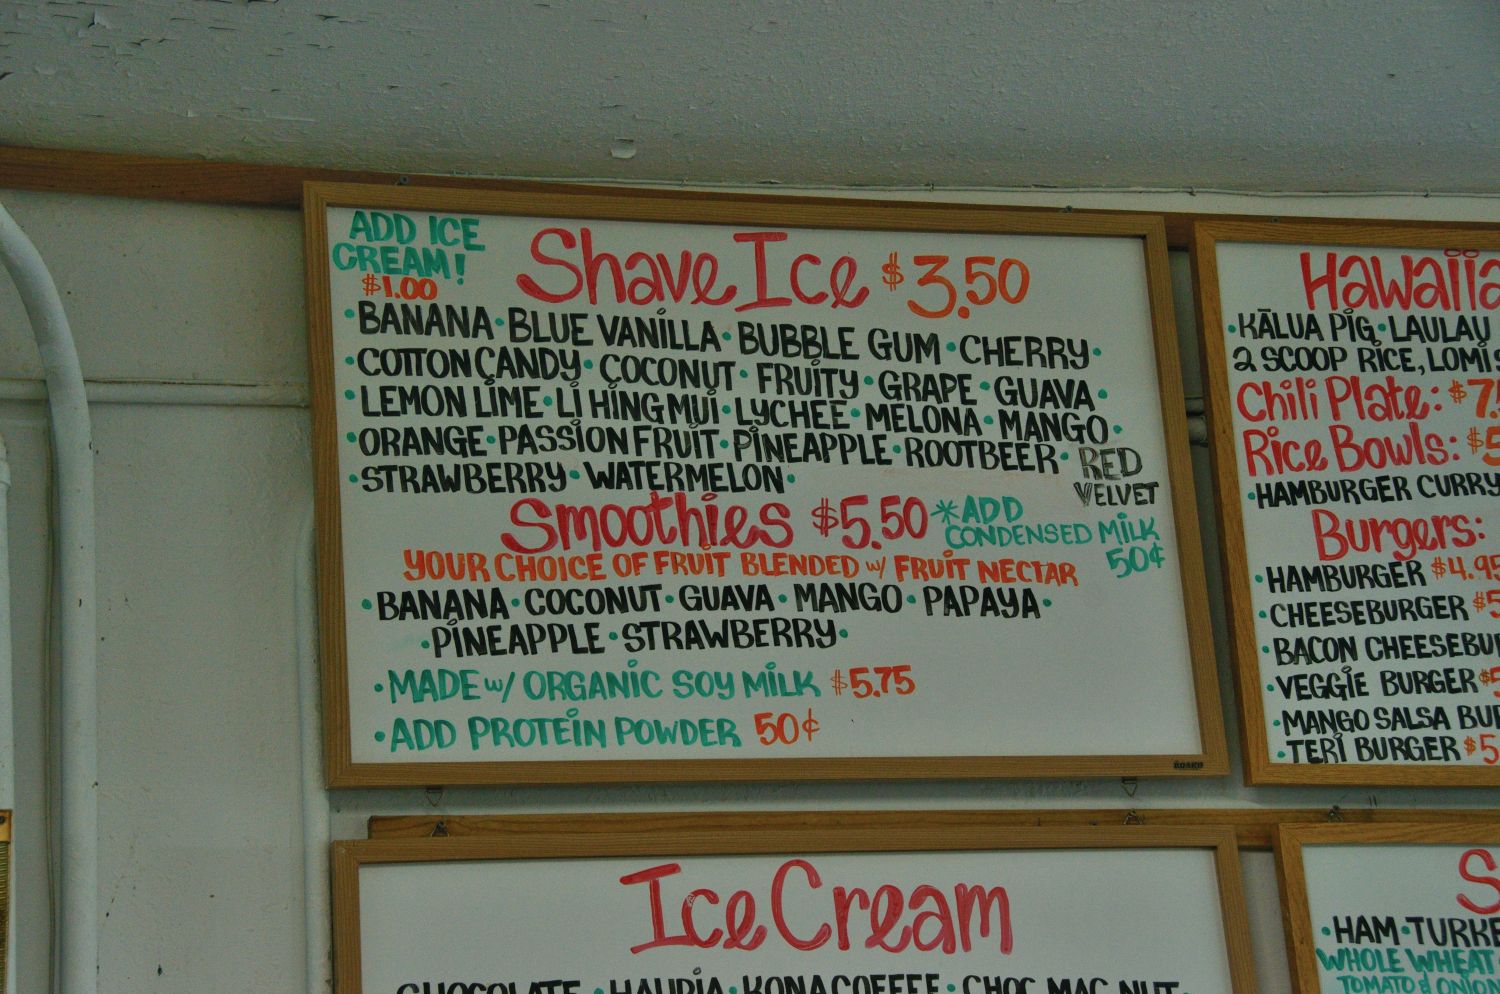 ADD ICE
CREAM!
$1.00
Shave Ice $3.50
BANANA • BLUE VANILLA • BUBBLE GUM • CHERRY •
• COTTON CANDY • COCONUT • FRUITY • GRAPE • GUAVA •
• LEMON LIME • LI HING MUI • LYCHEE • MELONA • MANGO •
• ORANGE • PASSION FRUIT • PINEAPPLE • ROOTBEER • RED
VELVET
• STRAWBERRY • WATERMELON •
Smoothies $5.50 *ADD
CONDENSED MILK
50¢
YOUR CHOICE OF FRUIT BLENDED w/ FRUIT NECTAR
• BANANA • COCONUT • GUAVA • MANGO • PAPAYA •
• PINEAPPLE • STRAWBERRY •
• MADE w/ ORGANIC SOY MILK $5.75
• ADD PROTEIN POWDER 50¢
BOARD
Hawaiia
• KĀLUA PIG • LAULAU
2 SCOOP RICE, LOMI S
Chili Plate: $7.
Rice Bowls: $5
• HAMBURGER CURRY
Burgers:
• HAMBURGER $4.95
• CHEESEBURGER $5
• BACON CHEESEBU
• VEGGIE BURGER $5
• MANGO SALSA BU
• TERI BURGER $5
Ice Cream
CHOCOLATE • HAUPIA • KONA COFFEE • CHOC MAC NUT •
S
• HAM • TURKE
WHOLE WHEAT
TOMATO & ONION